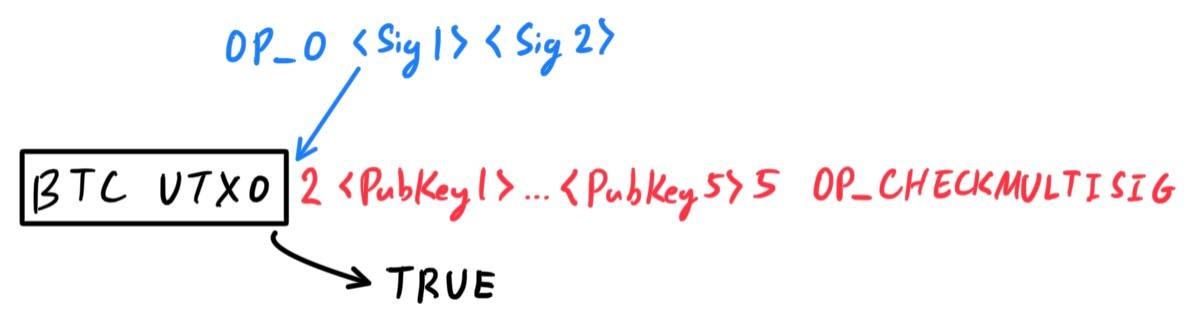 OP_0 <Sig 1> <Sig 2>
BTC UTXO 2 <PubKey1>...<PubKey5> 5 OP_CHECKMULTISIG
TRUE